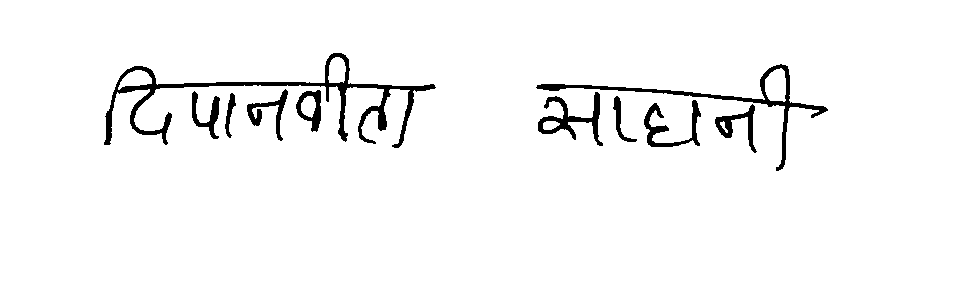 दिपानवीता साधनी